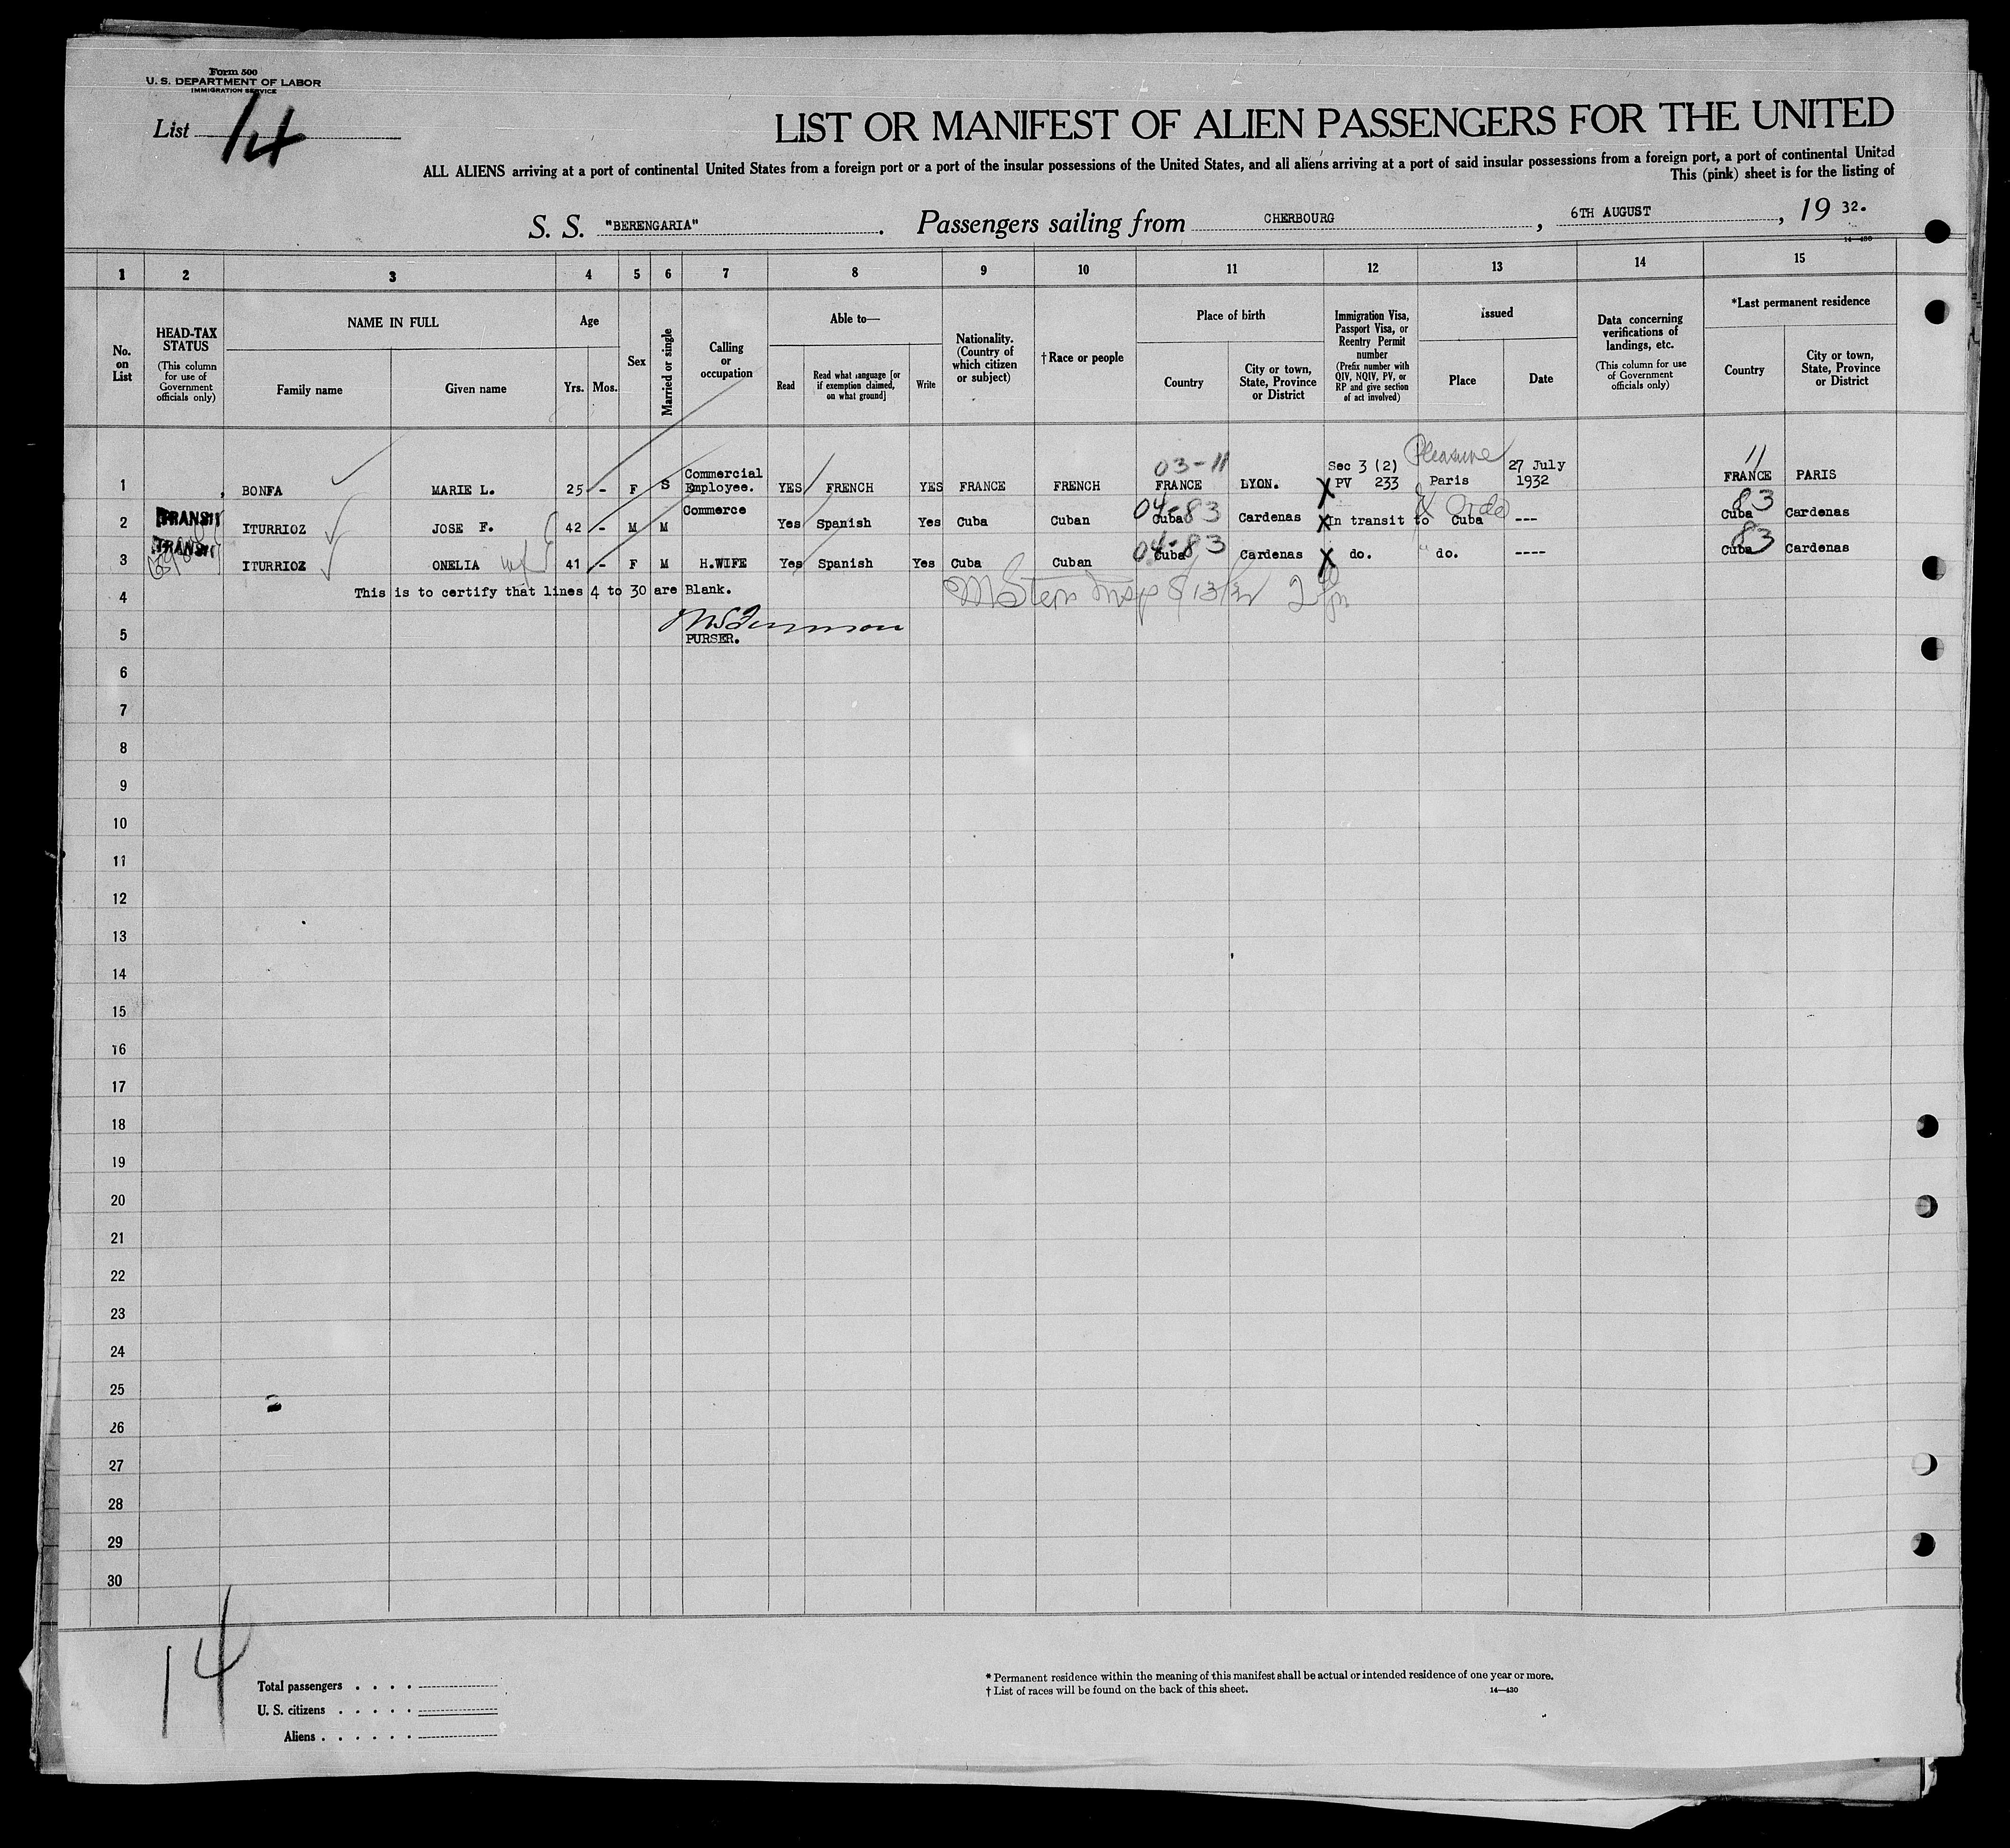 Form 500
U. S. DEPARTMENT OF LABOR
IMMIGRATION SERVICE
List 14
LIST OR MANIFEST OF ALIEN PASSENGERS FOR THE UNITED
ALL ALIENS arriving at a port of continental United States from a foreign port or a port of the insular possessions of the United States, and all aliens arriving at a port of said insular possessions from a foreign port, a port of continental United
This (pink) sheet is for the listing of
S. S. "BERENGARIA". Passengers sailing from CHERBOURG, 6TH AUGUST, 19 32.
14—430
1 2 3 4 5 6 7 8 9 10 11 12 13 14 15
No. on List
HEAD-TAX STATUS (This column for use of Government officials only)
NAME IN FULL
Family name
Given name
Age
Yrs. Mos.
Sex
Married or single
Calling or occupation
Able to—
Read
Read what language [or if exemption claimed, on what ground]
Write
Nationality. (Country of which citizen or subject)
†Race or people
Place of birth
Country
City or town, State, Province or District
Immigration Visa, Passport Visa, or Reentry Permit number (Prefix number with QIV, NQIV, PV, or RP and give section of act involved)
issued
Place
Date
Data concerning verifications of landings, etc. (This column for use of Government officials only)
*Last permanent residence
Country
City or town, State, Province or District
03-11 Sec 3 (2) Pleasure 27 July 11
1 BONFA MARIE L. 25 - F S Commercial Employee. YES FRENCH YES FRANCE FRENCH FRANCE LYON. X PV 233 Paris 1932 FRANCE PARIS
2 TRANSIT ITURRIOZ JOSE F. 42 - M M Commerce Yes Spanish Yes Cuba Cuban 04-83 Cuba Cardenas X In transit to Cuba --- 83 Cuba Cardenas
3 TRANSIT ITURRIOZ ONELIA wf 41 - F M H.WIFE Yes Spanish Yes Cuba Cuban 04-83 Cuba Cardenas X do. do. ---- 83 Cuba Cardenas
4 This is to certify that lines 4 to 30 are Blank.
5 PURSER.
6
7
8
9
10
11
12
13
14
15
16
17
18
19
20
21
22
23
24
25
26
27
28
29
30
14
Total passengers . . . .
U. S. citizens . . . . .
Aliens . . . . . .
* Permanent residence within the meaning of this manifest shall be actual or intended residence of one year or more.
† List of races will be found on the back of this sheet.
14—430